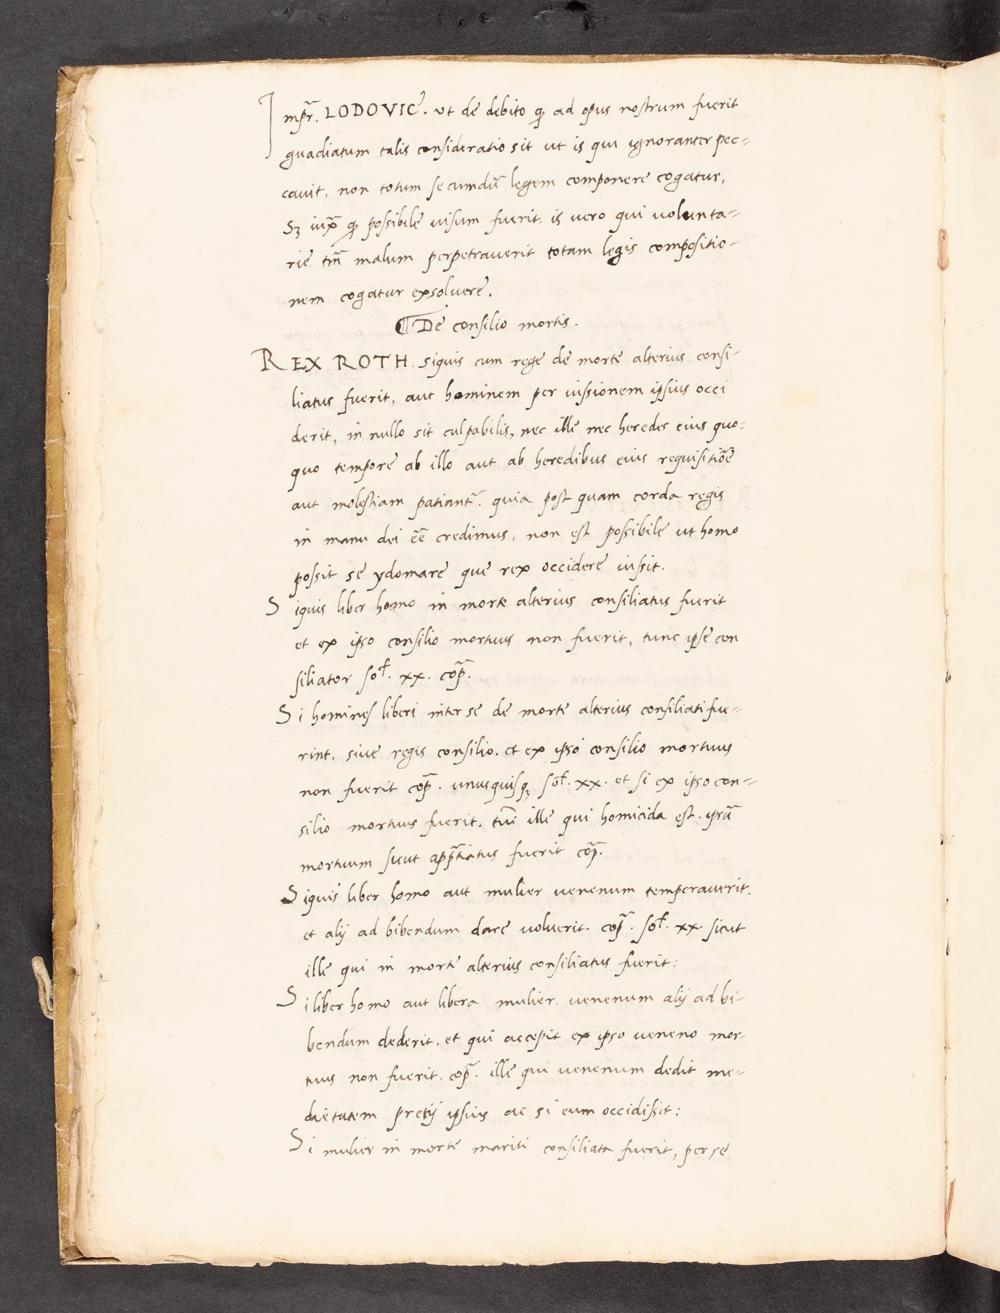 Imp̃r. LODOVIC̃. ut de debito q̨ ad opus nostrum fuerit
guadiatum talis consideratio sit ut is qui ignoranter pec-
cavit, non totum secundũ legem componere cogatur,
Sꝫ iuxᷓ q̨ possibile visum fuerit. is vero qui volunta-
rie tm̃ malum perpetraverit totam legis compositio-
nem cogatur exsolvere.
¶ De consilio mortis.
REX ROTH. Siquis cum rege de morte alterius consi-
liatus fuerit, aut hominem per iussionem ipsius occi
derit, in nullo sit culpabilis, nec ille nec heredes eius quo-
quo tempore ab illo aut ab heredibus eius requisitiõe
aut molestiam patiant᷑. quia post quam corda regis
in manu dei eẽ credimus, non est possibile ut homo
possit se ydomare que rex occidere iussit.
Siquis liber homo in morte alterius consiliatus fuerit
et ex ipso consilio mortuus non fuerit, tunc ipse con
siliator sol̃. xx. cop̃.
Si homines liberi inter se de morte alterius consiliati fue-
rint. sive regis consilio. et ex ipso consilio mortuus
non fuerit cop̃. unusquisq; sol̃. xx. et si ex ipso con-
silio mortuus fuerit. tũ ille qui homicida est. ip̃m
mortuum sicut app̃tiatus fuerit cop̃.
Siquis liber homo aut mulier venenum temperaverit.
et alij ad bibendum dare voluerit. cop̃. sol̃. xx. sicut
ille qui in morte alterius consiliatus fuerit:
Si liber homo aut libera mulier. venenum alij ad bi-
bendum dederit. et qui accepit ex ipso veneno mor-
tuus non fuerit. cop̃. ille qui venenum dedit me-
dietatem pretij ipsius ac si eum occidisset:
Si mulier in morte mariti consiliata fuerit, per se